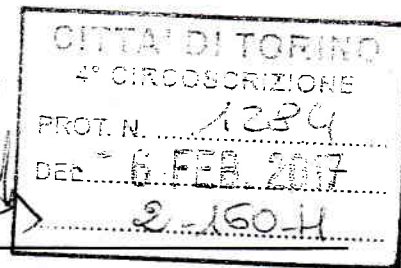 CITTA' DI TORINO
4° CIRCOSCRIZIONE
PROT. N. 1284
DEL 6 FEB. 2017
2-160-H